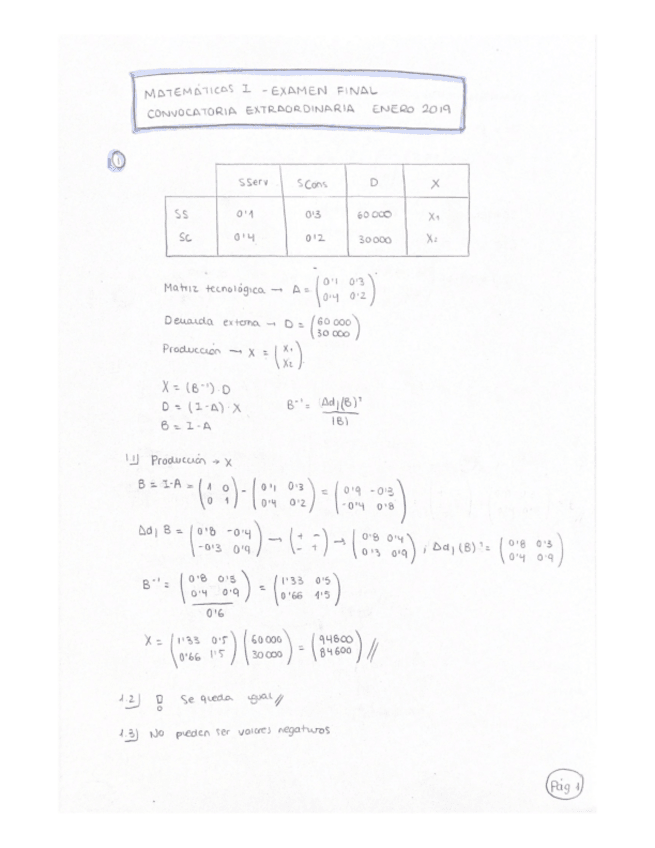 MATEMÁTICAS I - EXAMEN FINAL
CONVOCATORIA EXTRAORDINARIA ENERO 2019
1
SServ SCons D X
SS 0'1 0'3 60000 X1
SC 0'4 0'2 30000 X2
Matriz tecnológica → A = (0'1 0'3
0'4 0'2)
Demanda externa → D = (60 000
30 000)
Producción → X = (X1
X2)
X = (B⁻¹) · D
D = (I-A) · X B⁻¹ = Adj(B)ᵗ
B = I-A |B|
1.1) Producción → X
B = I-A = (1 0 - (0'1 0'3 = (0'9 -0'3
0 1) 0'4 0'2) -0'4 0'8)
Adj B = (0'8 -0'4 → (+ - → (0'8 0'4 ; Adj(B)ᵗ = (0'8 0'3
-0'3 0'9) - +) 0'3 0'9) 0'4 0'9)
B⁻¹ = (0'8 0'3 = (1'33 0'5
0'4 0'9) 0'66 1'5)
0'6
X = (1'33 0'5 (60 000 = (94800
0'66 1'5) 30 000) 84600) //
1.2) Se queda igual //
1.3) No pueden ser valores negativos
Pág 1